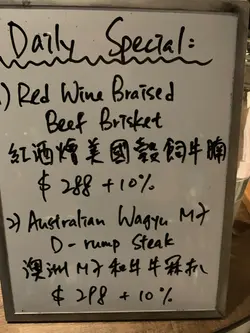 Daily Special:
1) Red Wine Braised
Beef Brisket
紅酒燴美國穀飼牛腩
$ 288 + 10%
2) Australian Wagyu M7
D-rump Steak
澳洲M7和牛牛冧扒
$ 298 + 10%